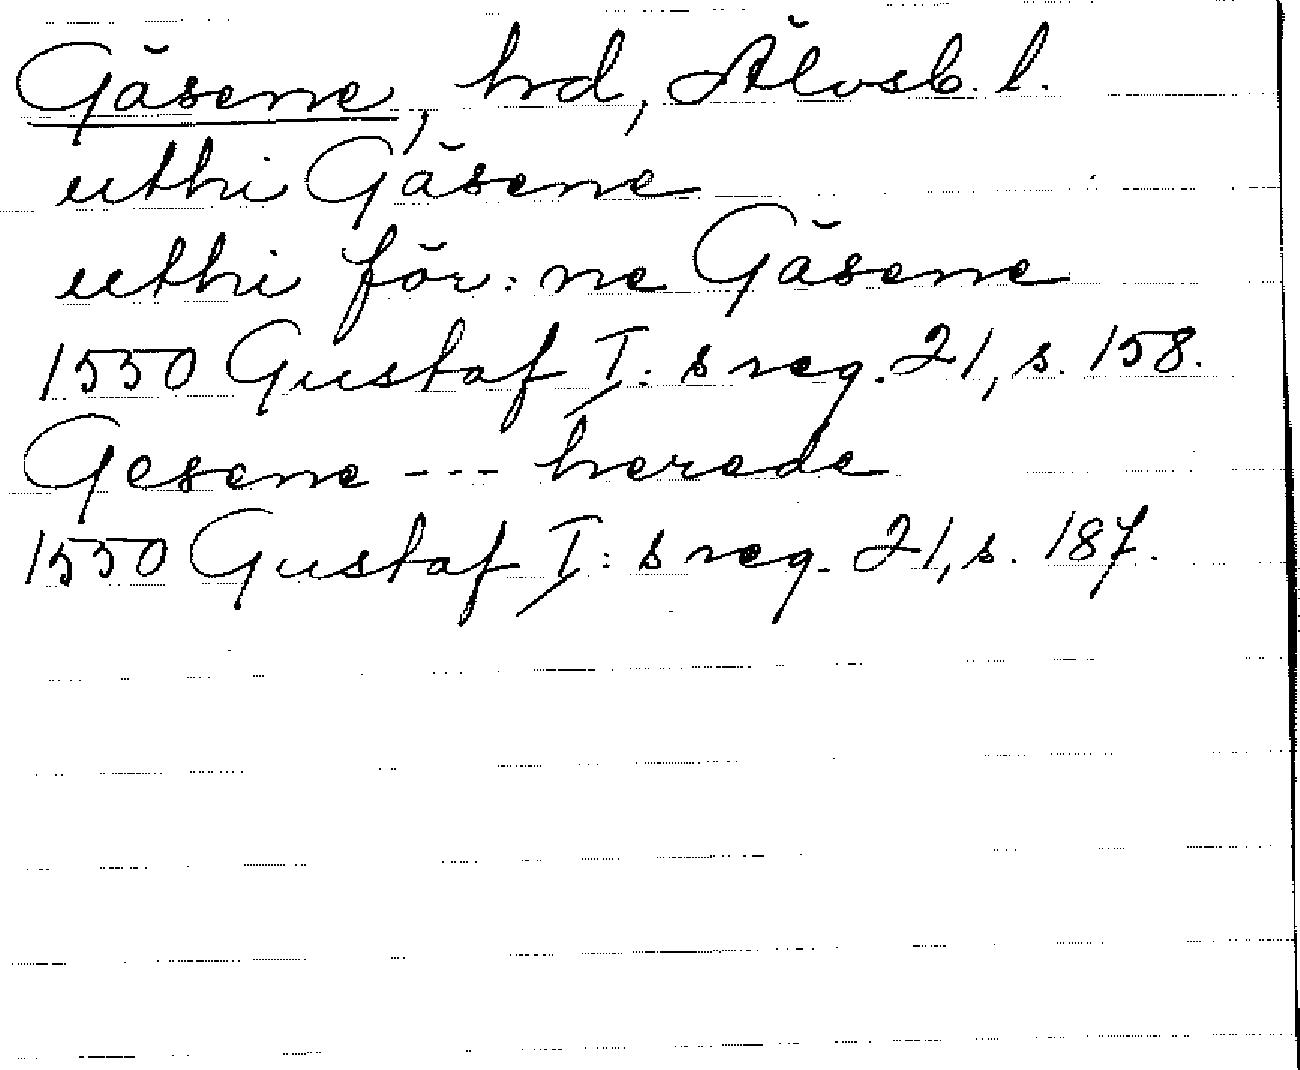 Gäsene, hd, Älvsb. l.
uthi Gäsene
uthi för:ne Gäsene
1550 Gustaf I:s reg. 21, s. 158.
Gesene --- herede
1550 Gustaf I:s reg. 21, s. 187.